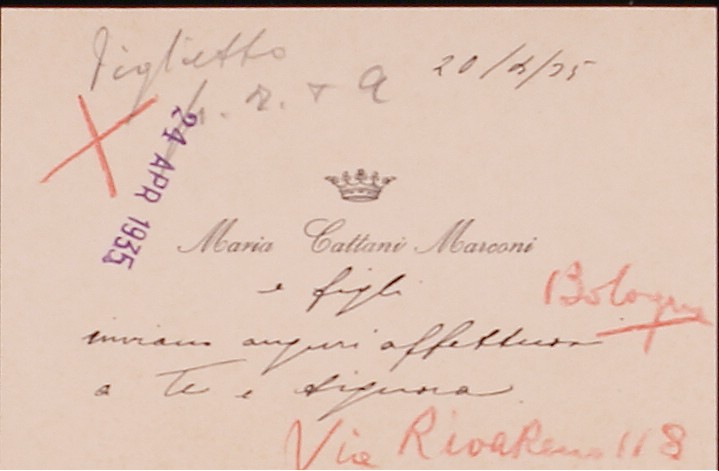 Biglietto 20/4/35
h. r. + a
24 APR 1935
Maria Cattani Marconi
e figli
Bologna
inviano auguri affettuosi
a Te e Signora
Via Riva Reno 118